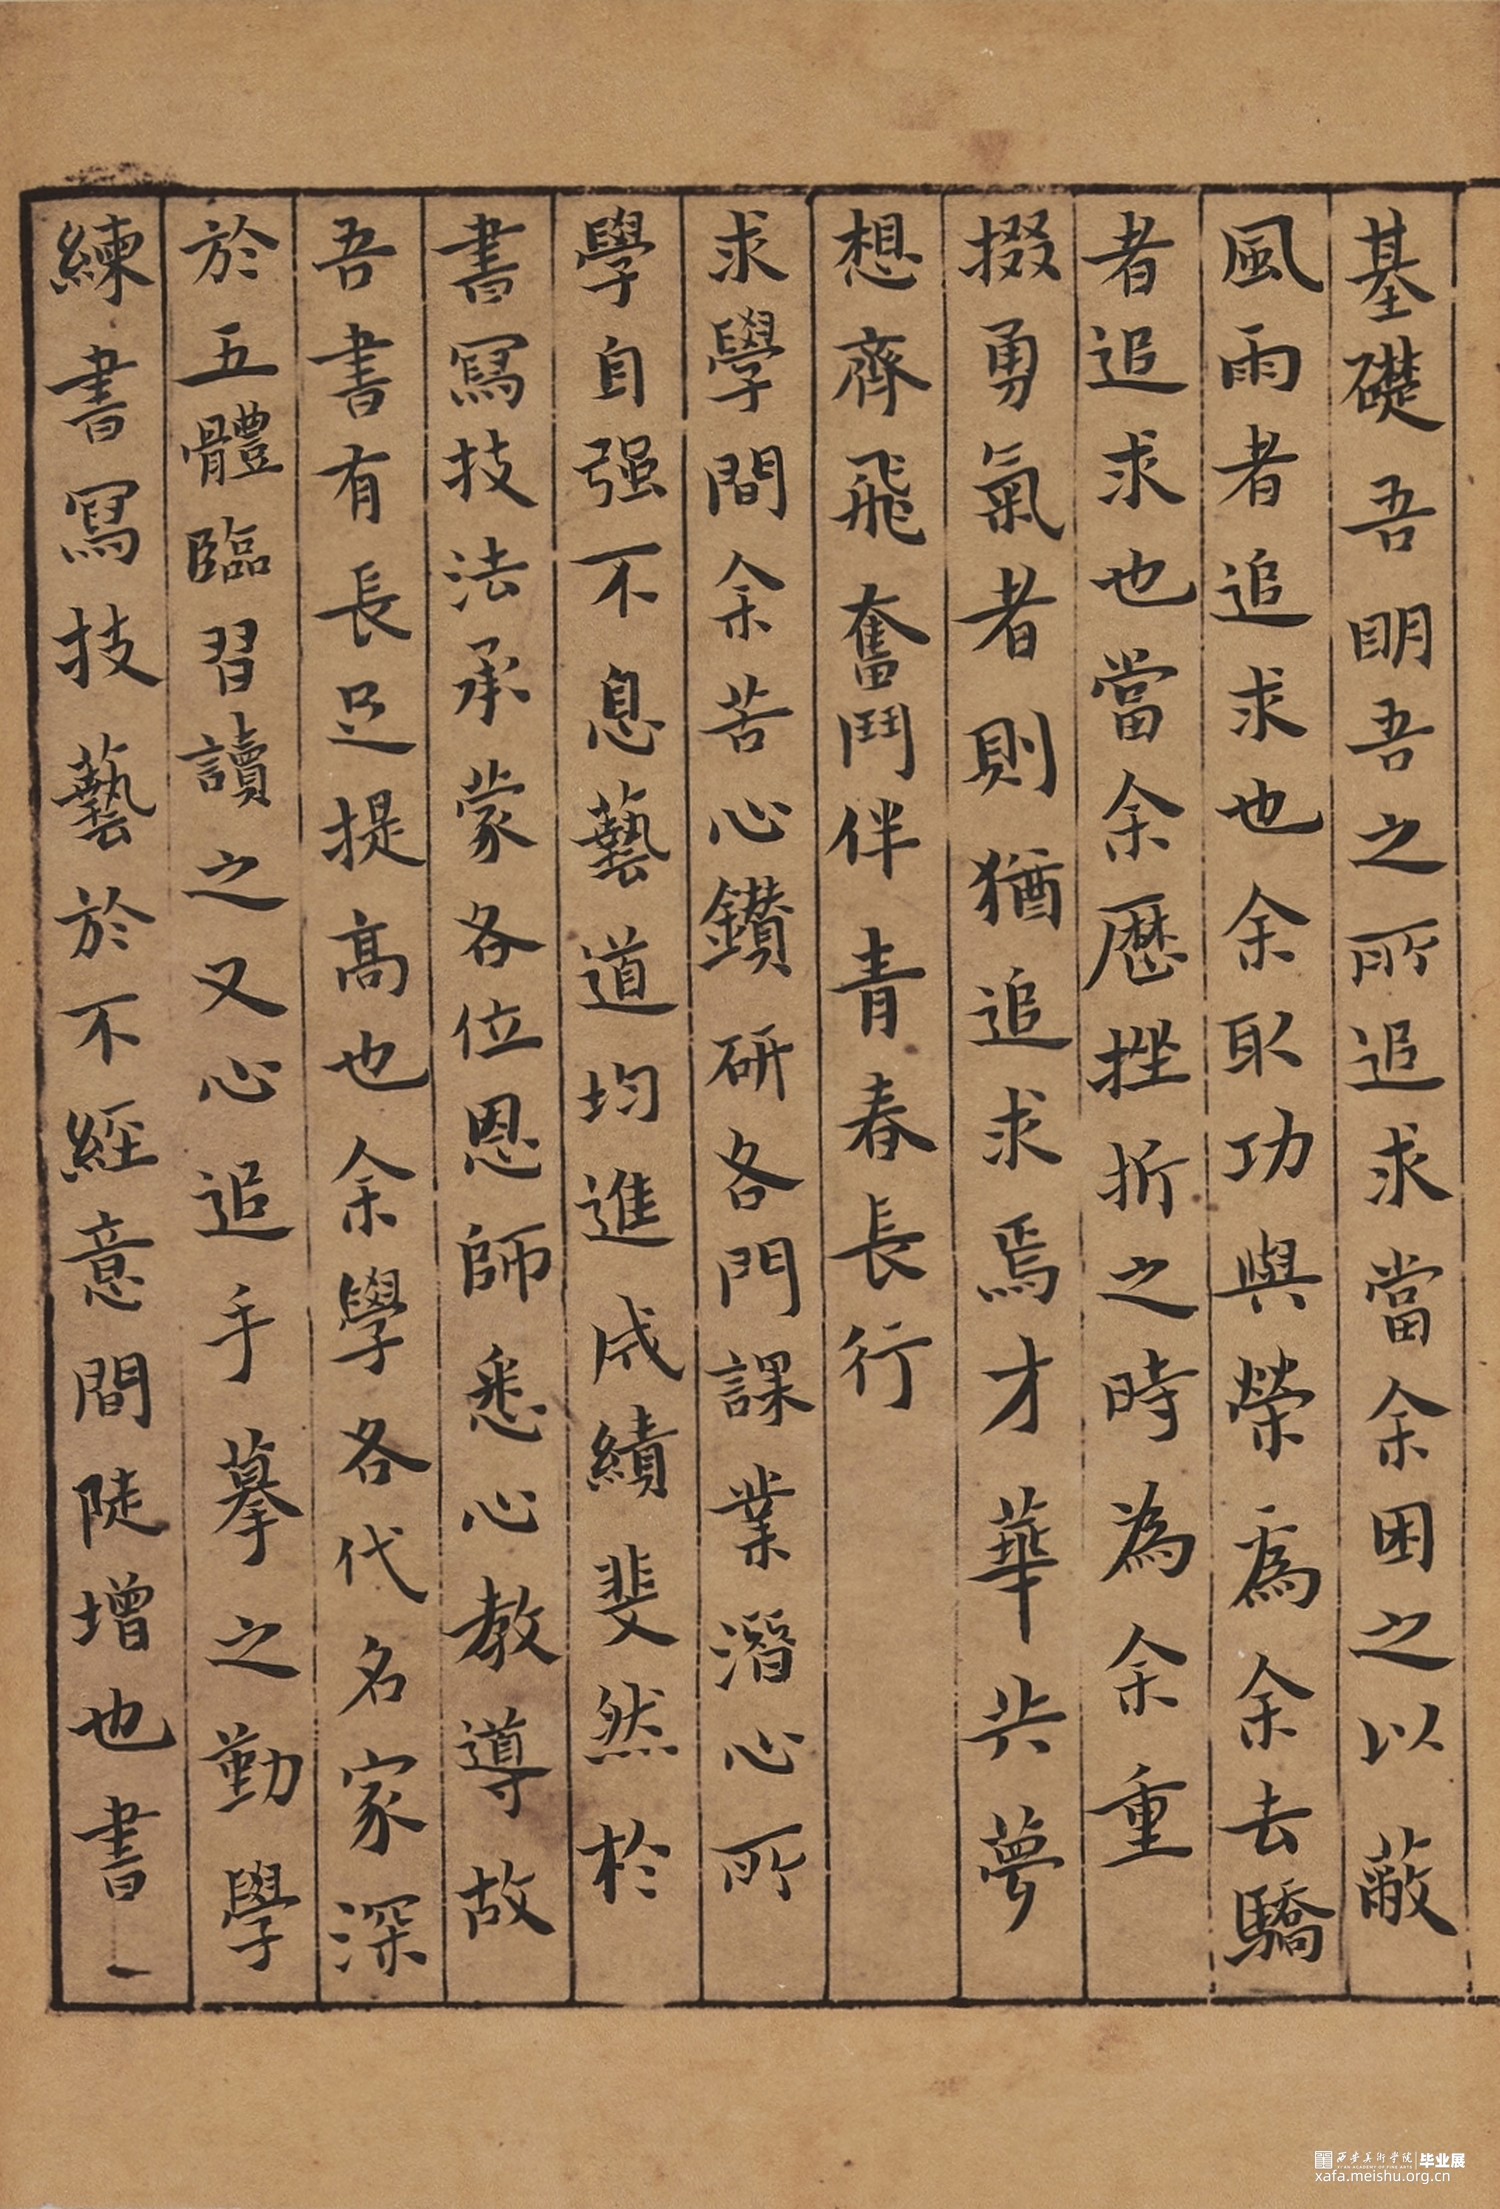 基礎吾明吾之所追求當余困之以蔽
風雨者追求也余取功與榮為余去驕
者追求也當余歷挫折之時為余重
掇勇氣者則猶追求焉才華共夢
想齊飛奮鬥伴青春長行
求學間余苦心鑽研各門課業潛心所
學自强不息藝道均進成績斐然於
書寫技法承蒙各位恩師悉心教導故
吾書有長足提高也余學各代名家深
於五體臨習讀之又心追手摹之勤學
練書寫技藝於不經意間陡增也書一
西安美術學院 毕业展
xafa.meishu.org.cn